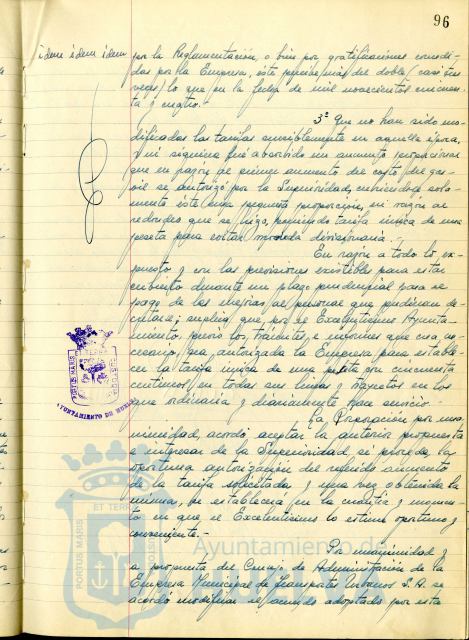 96
idem idem idem
por la Reglamentación, o bien por gratificaciones concedi-
das por la Empresa, este personal más del doble (casi tres
veces) lo que en la fecha de mil novecientos cincuen-
ta y cuatro.-
3º Que no han sido mo-
dificadas las tarifas sensiblemente en aquella época,
y ni siquiera fué absorbido un aumento proporcional
que en razón al primer aumento del coste del gas-
oil se autorizó por la Superioridad, cubriendo sola-
mente éste una pequeña proporción, en razón al
redondeo que se hizo, poniendo tarifa única de una
peseta para evitar moneda divisionaria.-
En razón a todo lo ex-
puesto y con las previsiones existentes para estar
cubierto durante un plazo prudencial para el
pago de las mejoras al personal que pudieran de-
cretarse; suplica que por el Excelentísimo Ayunta-
miento, previo los trámites e informes que crea
sea autorizada la Empresa para estable-
cer la tarifa única de una peseta con cincuenta
céntimos en todas sus líneas y trayectos en los
que ordinaria y diariamente hace servicio.-
La Corporación por una-
nimidad, acordó aceptar la anterior propuesta
e interesar de la Superioridad, se proceda la
oportuna autorización del referido aumento
de la tarifa solicitada y una vez obtenida la
misma, se establecerá en la cuantía y momen-
to en que el Excelentísimo lo estime oportuno y
conveniente.-
Por unanimidad y
a propuesta del Consejo de Administración de la
Empresa Municipal de Transportes Urbanos S. A. se
acordó modificar el acuerdo adoptado por esta
PORTUS MARIS ET TERRAE CUSTODIA
AYUNTAMIENTO DE HUELVA
PORTUS MARIS ET TERRAE CUSTODIA
Ayuntamiento de